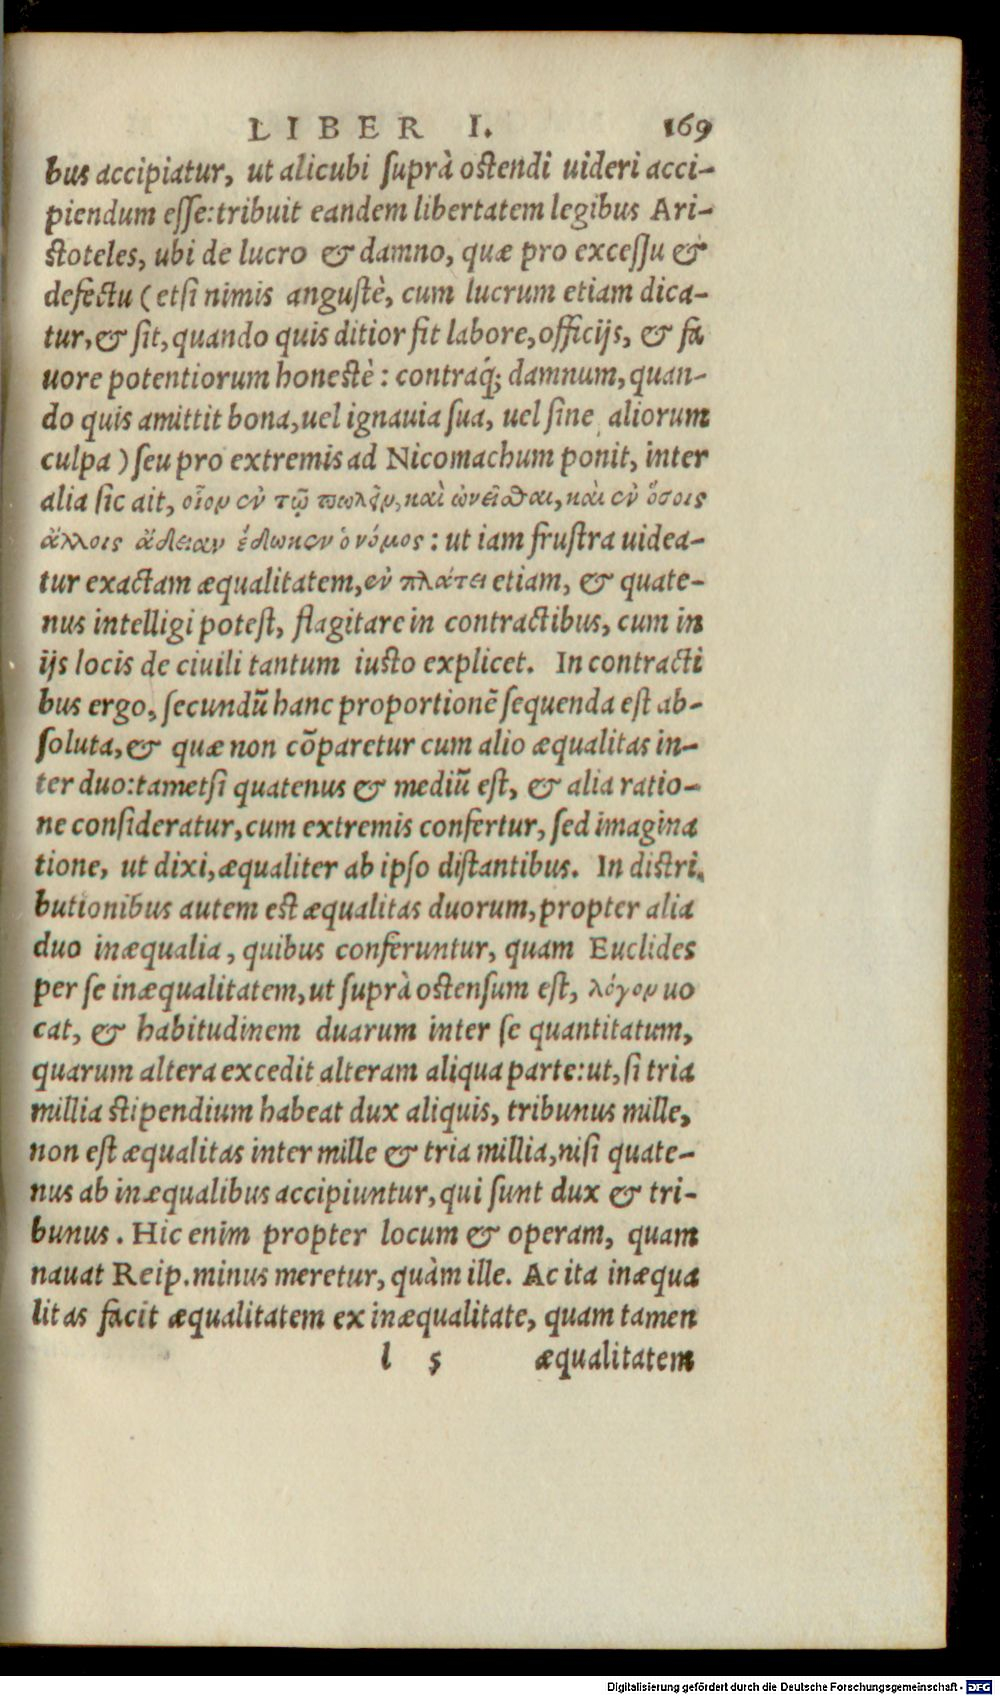 LIBER I. 169
bus accipiatur, ut alicubi suprà ostendi uideri acci-
piendum esse: tribuit eandem libertatem legibus Ari-
stoteles, ubi de lucro & damno, quæ pro excessu &
defectu (etsi nimis angustè, cum lucrum etiam dica-
tur, & sit, quando quis ditior fit labore, officijs, & fa
uore potentiorum honestè: contraq́; damnum, quan-
do quis amittit bona, uel ignauia sua, uel sine aliorum
culpa) seu pro extremis ad Nicomachum ponit, inter
alia sic ait, οἷον ἐν τῷ πωλεῖν, καὶ ὠνεῖσθαι, καὶ ἐν ὅσοις
ἄλλοις ἄδειαν ἔδωκεν ὁ νόμος: ut iam frustra uidea-
tur exactam æqualitatem, ἐν πλάτει etiam, & quate-
nus intelligi potest, flagitare in contractibus, cum in
ijs locis de ciuili tantum iusto explicet. In contracti
bus ergo, secundũ hanc proportionẽ sequenda est ab-
soluta, & quæ non cõparetur cum alio æqualitas in-
ter duo: tametsi quatenus & mediũ est, & alia ratio-
ne consideratur, cum extremis confertur, sed imagina
tione, ut dixi, æqualiter ab ipso distantibus. In distri
butionibus autem est æqualitas duorum, propter alia
duo inæqualia, quibus conferuntur, quam Euclides
per se inæqualitatem, ut suprà ostensum est, λόγον uo
cat, & habitudinem duarum inter se quantitatum,
quarum altera excedit alteram aliqua parte: ut, si tria
millia stipendium habeat dux aliquis, tribunus mille,
non est æqualitas inter mille & tria millia, nisi quate-
nus ab inæqualibus accipiuntur, qui sunt dux & tri-
bunus. Hic enim propter locum & operam, quam
nauat Reip. minus meretur, quàm ille. Ac ita inæqua
litas facit æqualitatem ex inæqualitate, quam tamen
l 5 æqualitatem
Digitalisierung gefördert durch die Deutsche Forschungsgemeinschaft - DFG